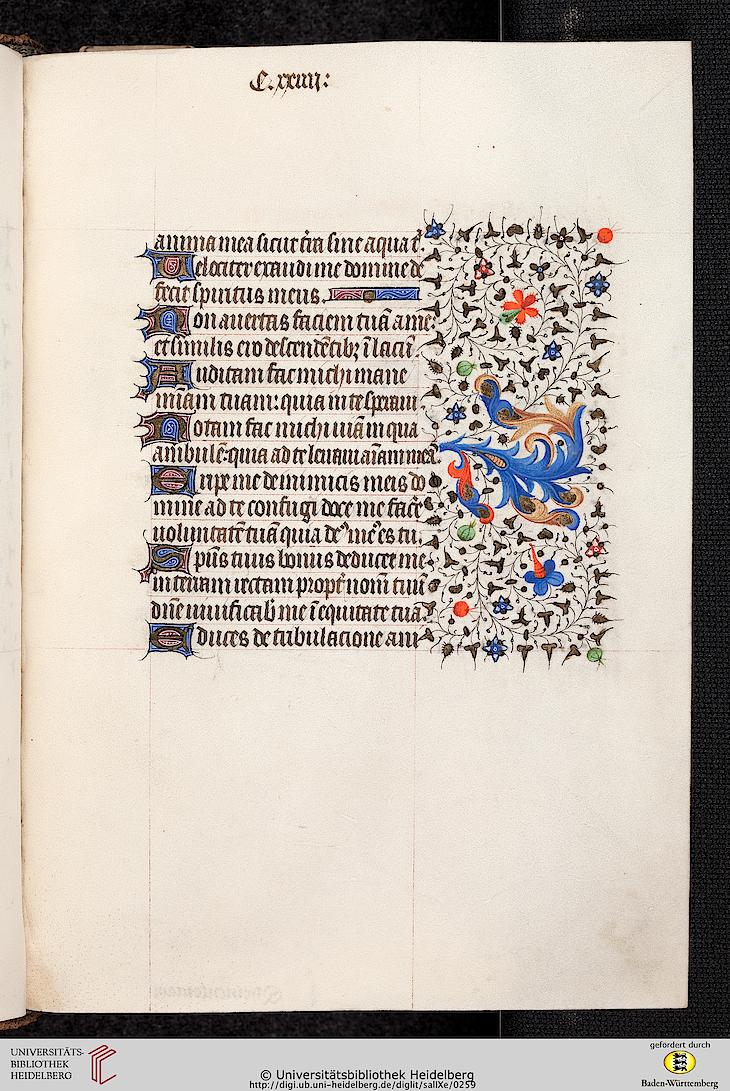 C. xxiiij:
anima mea sicut t̄ra sine aqua t̄.
Velociter exaudi me domine de
fecit spiritus meus.
Non auertas faciem tuā a me
et similis ero descendētibꝫ ī lacū.
Auditam fac michi mane
miam tuam: quia in te speraui
Notam fac michi uiā in qua
ambulē: quia ad te leuaui aīam meā
Eripe me de inimicis meis do
mine ad te confugi doce me facē
uoluntatē tuā quia deꝰ meꝰ es tu.
Spūs tuus bonus deducet me
in terram rectam propt̄ nom̄ tuū
dn̄e uiuificab̄ me ī equitate tua.
Educes de tribulacione ani
UNIVERSITÄTS-
BIBLIOTHEK
HEIDELBERG
© Universitätsbibliothek Heidelberg
http://digi.ub.uni-heidelberg.de/diglit/salIXe/0259
gefördert durch
Baden-Württemberg